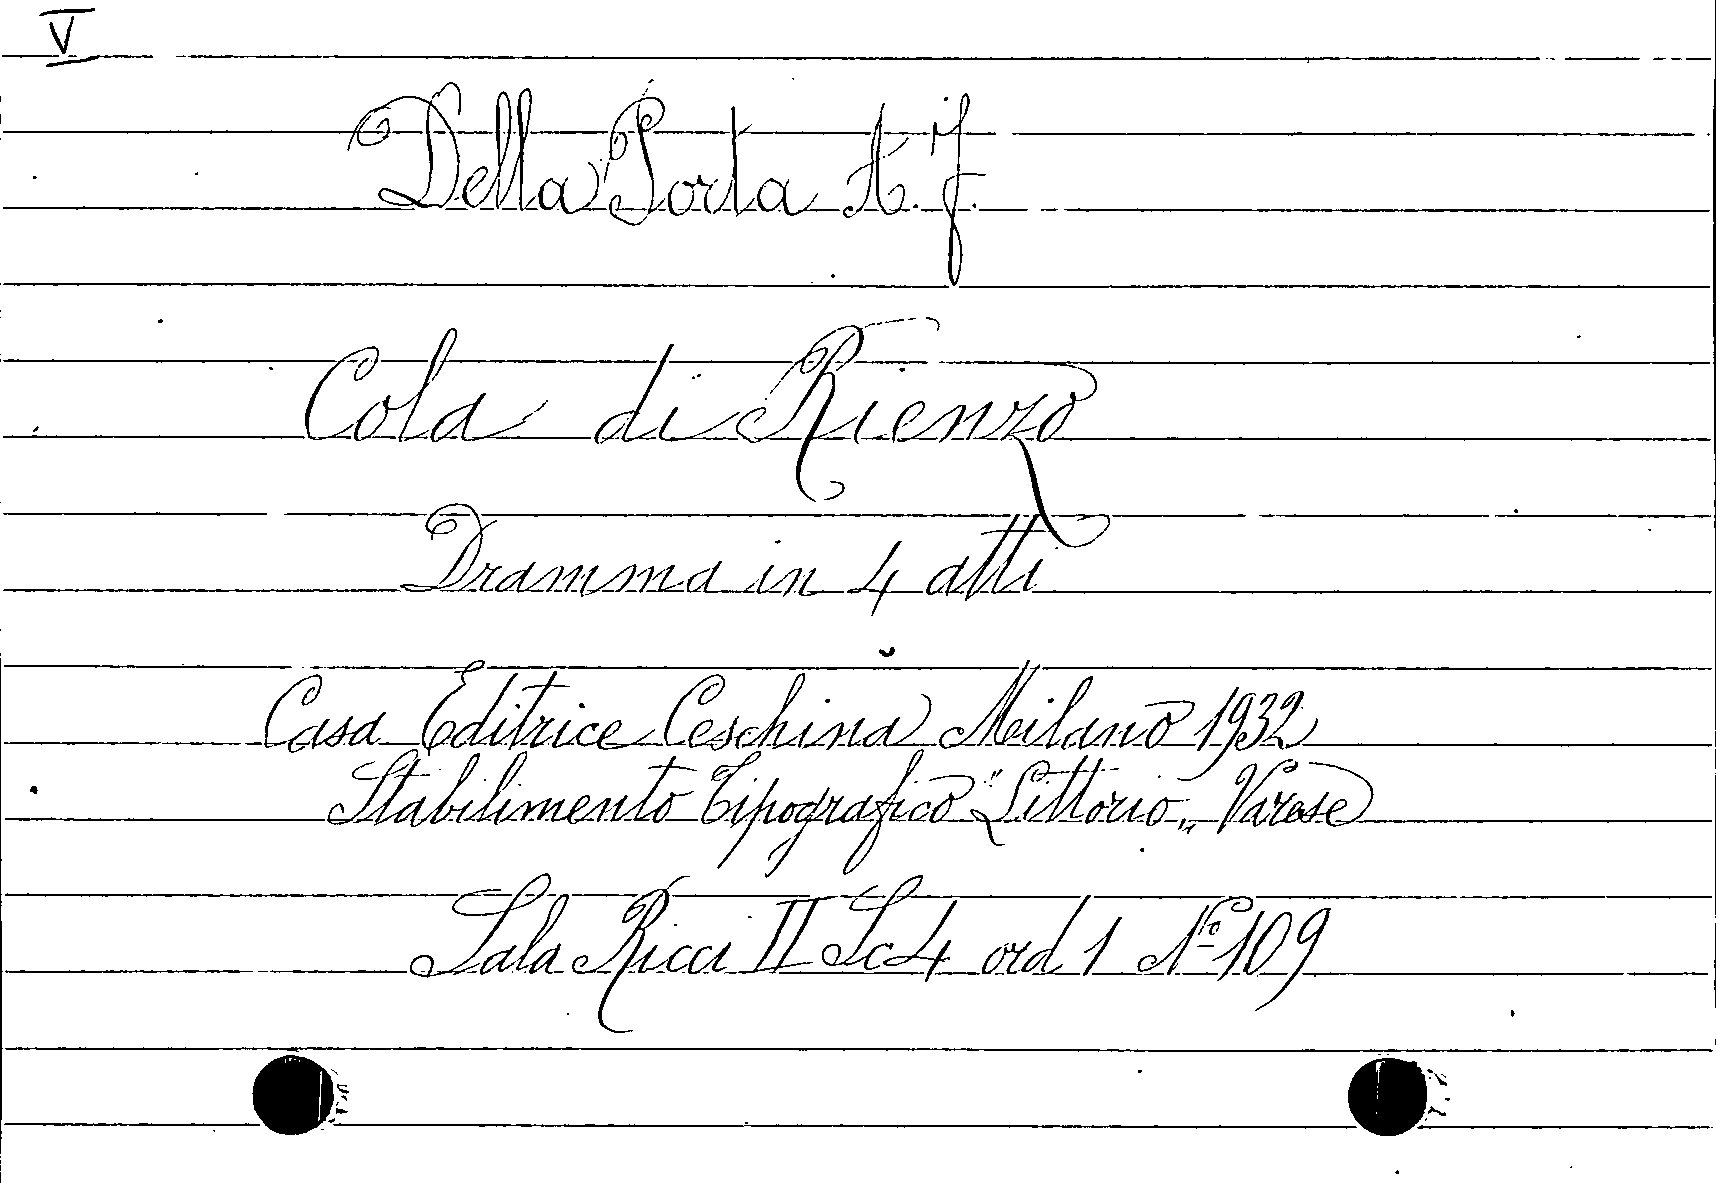 V
Della Porta A. F.
Cola di Rienzo
Dramma in 4 atti
Casa Editrice Ceschina Milano 1932
Stabilimento Tipografico "Littorio„ Varese
Sala Ricci II Sc 4 ord 1 Nº 109